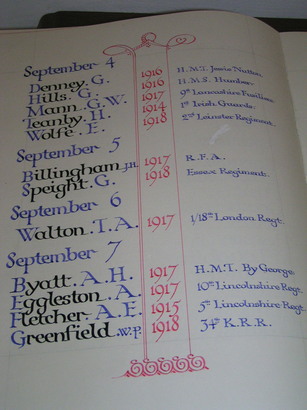 September 4
Denney. G. 1916 H.M.T. Jessie Nutten.
Hills. G. 1916 H.M.S.
Mann. G.W. 1917 9th Lancashire Fusiliers.
Teanby. H. 1914 1st Irish Guards.
Wolfe. E. 1918 2nd Leinster Regiment.
September 5
Billingham J.H. 1917 R.F.A.
Speight. G. 1918 Essex Regiment.
September 6
Walton. T. A. 1917 1/18th London Regt.
September 7
Byatt. A. H. 1917 H.M.T. By George
Eggleston. A. 1917 10th Lincolnshire Regt.
Fletcher. A. E. 1915 5th Lincolnshire Regt.
Greenfield. W.P. 1918 34th K.R.R.